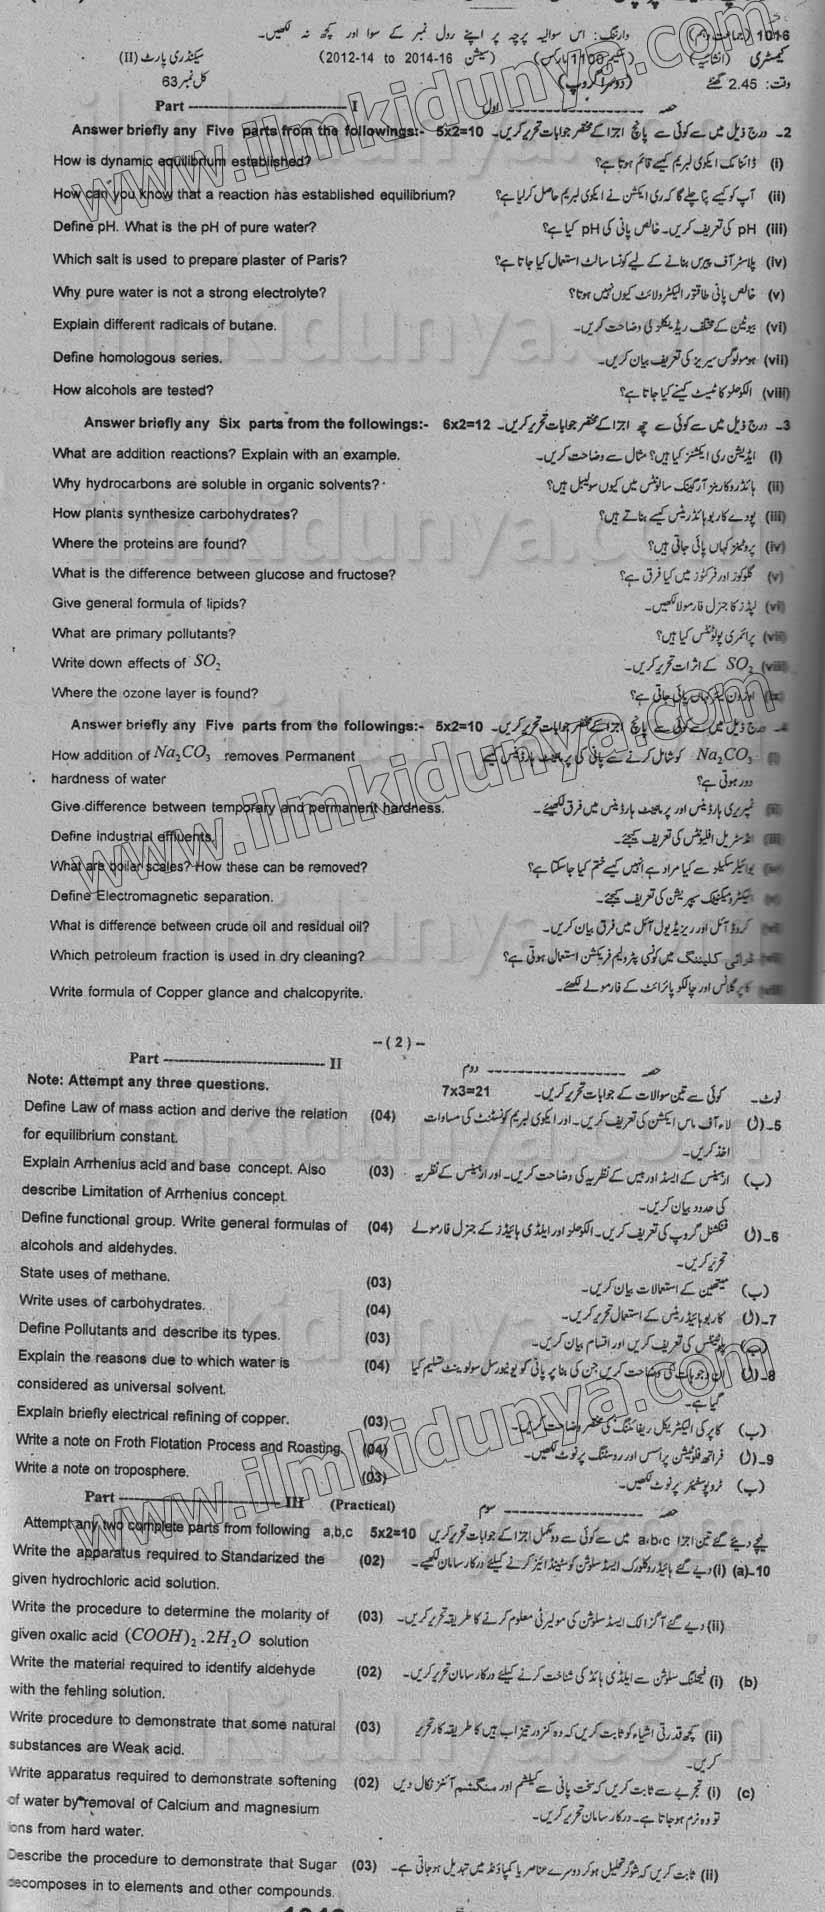 1016 (جماعت دہم) وارننگ: اس سوالیہ پرچہ پر اپنے رول نمبر کے سوا اور کچھ نہ لکھیں۔
کیمسٹری (انشائیہ) (سکیم 1100 مارکس) (سیشن 2012-14 to 2014-16) سیکنڈری پارٹ (II)
وقت: 2.45 گھنٹے (دوسرا گروپ) کل نمبر 63
Part ------------------ I حصہ ------------------ اول
Answer briefly any Five parts from the followings:- 5x2=10 2۔ درج ذیل میں سے کوئی سے پانچ اجزا کے مختصر جوابات تحریر کریں۔
How is dynamic equilibrium established? (i) ڈائنامک ایکوی لبریم کیسے قائم ہوتا ہے؟
How can you know that a reaction has established equilibrium? (ii) آپ کو کیسے پتا چلے گا کہ ری ایکشن نے ایکوی لبریم حاصل کر لیا ہے؟
Define pH. What is the pH of pure water? (iii) pH کی تعریف کریں۔ خالص پانی کی pH کیا ہے؟
Which salt is used to prepare plaster of Paris? (iv) پلاسٹر آف پیرس بنانے کے لیے کونسا سالٹ استعمال کیا جاتا ہے؟
Why pure water is not a strong electrolyte? (v) خالص پانی طاقتور الیکٹرولائٹ کیوں نہیں ہوتا؟
Explain different radicals of butane. (vi) بیوٹین کے مختلف ریڈیکلز کی وضاحت کریں۔
Define homologous series. (vii) ہومولوگس سیریز کی تعریف بیان کریں۔
How alcohols are tested? (viii) الکوحلز کا ٹیسٹ کیسے کیا جاتا ہے؟
Answer briefly any Six parts from the followings:- 6x2=12 3۔ درج ذیل میں سے کوئی سے چھ اجزا کے مختصر جوابات تحریر کریں۔
What are addition reactions? Explain with an example. (i) ایڈیشن ری ایکشنز کیا ہیں؟ مثال سے وضاحت کریں۔
Why hydrocarbons are soluble in organic solvents? (ii) ہائڈروکاربنز آرگینک سالونٹس میں کیوں سولیبل ہیں؟
How plants synthesize carbohydrates? (iii) پودے کاربوہائڈریٹس کیسے بناتے ہیں؟
Where the proteins are found? (iv) پروٹینز کہاں پائی جاتی ہیں؟
What is the difference between glucose and fructose? (v) گلوکوز اور فرکٹوز میں کیا فرق ہے؟
Give general formula of lipids? (vi) لپڈز کا جنرل فارمولا لکھیں۔
What are primary pollutants? (vii) پرائمری پولوٹنٹس کیا ہیں؟
Write down effects of SO₂ (viii) SO₂ کے اثرات تحریر کریں۔
Where the ozone layer is found? (ix) اوزون لیئر کہاں پائی جاتی ہے؟
Answer briefly any Five parts from the followings:- 5x2=10 4۔ درج ذیل میں سے کوئی سے پانچ اجزا کے مختصر جوابات تحریر کریں۔
How addition of Na₂CO₃ removes Permanent (i) Na₂CO₃ کو شامل کرنے سے پانی کی پرمیننٹ ہارڈنیس کیسے
hardness of water دور ہوتی ہے؟
Give difference between temporary and permanent hardness. (ii) ٹمپریری ہارڈنیس اور پرمیننٹ ہارڈنیس میں فرق لکھیئے۔
Define industrial effluents. (iii) انڈسٹریل افلیونٹس کی تعریف کیجیئے۔
What are boiler scales? How these can be removed? (iv) بوائلر سکیلز سے کیا مراد ہے انہیں کیسے ختم کیا جاسکتا ہے؟
Define Electromagnetic separation. (v) الیکٹرومیگنیٹک سپریشن کی تعریف کیجیئے۔
What is difference between crude oil and residual oil? (vi) کروڈ آئل اور ریزیڈیول آئل میں فرق بیان کریں۔
Which petroleum fraction is used in dry cleaning? (vii) ڈرائی کلیننگ میں کونسی پٹرولیم فریکشن استعمال ہوتی ہے؟
Write formula of Copper glance and chalcopyrite. (viii) کاپر گلانس اور چالکوپائرائٹ کے فارمولے لکھئے۔
--(2)--
Part ------------------ II حصہ ------------------ دوم
Note: Attempt any three questions. 7x3=21 نوٹ۔ کوئی سے تین سوالات کے جوابات تحریر کریں۔
Define Law of mass action and derive the relation (04) 5۔(ا) لاء آف ماس ایکشن کی تعریف کریں۔ اور ایکوی لبریم کونسٹنٹ کی مساوات
for equilibrium constant. اخذ کریں۔
Explain Arrhenius acid and base concept. Also (03) (ب) ارہینیس کے ایسڈ اور بیس کے نظریہ کی وضاحت کریں۔ اور ارہینیس کے نظریہ
describe Limitation of Arrhenius concept. کی حدود بیان کریں۔
Define functional group. Write general formulas of (04) 6۔(ا) فنکشنل گروپ کی تعریف کریں۔ الکوحلز اور ایلڈی ہائیڈز کے جنرل فارمولے
alcohols and aldehydes. تحریر کریں۔
State uses of methane. (03) (ب) میتھین کے استعمالات بیان کریں۔
Write uses of carbohydrates. (04) 7۔(ا) کاربوہائیڈریٹس کے استعمال تحریر کریں۔
Define Pollutants and describe its types. (03) (ب) پلوٹینٹس کی تعریف کریں اور اقسام بیان کریں۔
Explain the reasons due to which water is (04) 8۔(ا) ان وجوہات کی وضاحت کریں جن کی بنا پر پانی کو یونیورسل سولوینٹ تسلیم کیا
considered as universal solvent. گیا ہے۔
Explain briefly electrical refining of copper. (03) (ب) کاپر کی الیکٹریکل ریفائننگ کی مختصر وضاحت کریں۔
Write a note on Froth Flotation Process and Roasting. (04) 9۔(ا) فراتھ فلوٹیشن پراسس اور روسٹنگ پر نوٹ لکھیں۔
Write a note on troposphere. (03) (ب) ٹروپوسفیئر پر نوٹ لکھیں۔
Part ------------------ III (Practical) حصہ ------------------ سوم
Attempt any two complete parts from following a,b,c 5x2=10 نیچے دیئے گئے تین اجزا a,b,c میں سے کوئی سے دو مکمل اجزا کے جوابات تحریر کریں
Write the apparatus required to Standarized the (02) 10-(a) (i) دیے گئے ہائیڈروکلورک ایسڈ سلوشن کو سٹینڈائیز کرنے کیلئے درکار سامان لکھیے۔
given hydrochloric acid solution.
Write the procedure to determine the molarity of (03) (ii) دیے گئے آگزالک ایسڈ سلوشن کی مولیرٹی معلوم کرنے کا طریقہ تحریر کریں۔
given oxalic acid (COOH)₂.2H₂O solution
Write the material required to identify aldehyde (02) (b) (i) فیہلنگ سلوشن سے ایلڈی ہائڈ کی شناخت کرنے کیلئے درکار سامان تحریر کریں۔
with the fehling solution.
Write procedure to demonstrate that some natural (03) (ii) کچھ قدرتی اشیاء کو ثابت کریں کہ وہ کمزور تیزاب ہیں کا طریقہ کار تحریر
substances are Weak acid. کریں۔
Write apparatus required to demonstrate softening (02) (c) (i) تجربے سے ثابت کریں کہ سخت پانی سے کیلشم اور منگنشم آئنز نکال دیں
of water by removal of Calcium and magnesium تو وہ نرم ہو جاتا ہے۔ درکار سامان تحریر کریں۔
ions from hard water.
Describe the procedure to demonstrate that Sugar (03) (ii) ثابت کریں کہ شوگر تحلیل ہو کر دوسرے عناصر یا کمپاؤنڈ میں تبدیل ہو جاتی ہے۔
decomposes in to elements and other compounds.
www.ilmkidunya.com
www.ilmkidunya.com
www.ilmkidunya.com